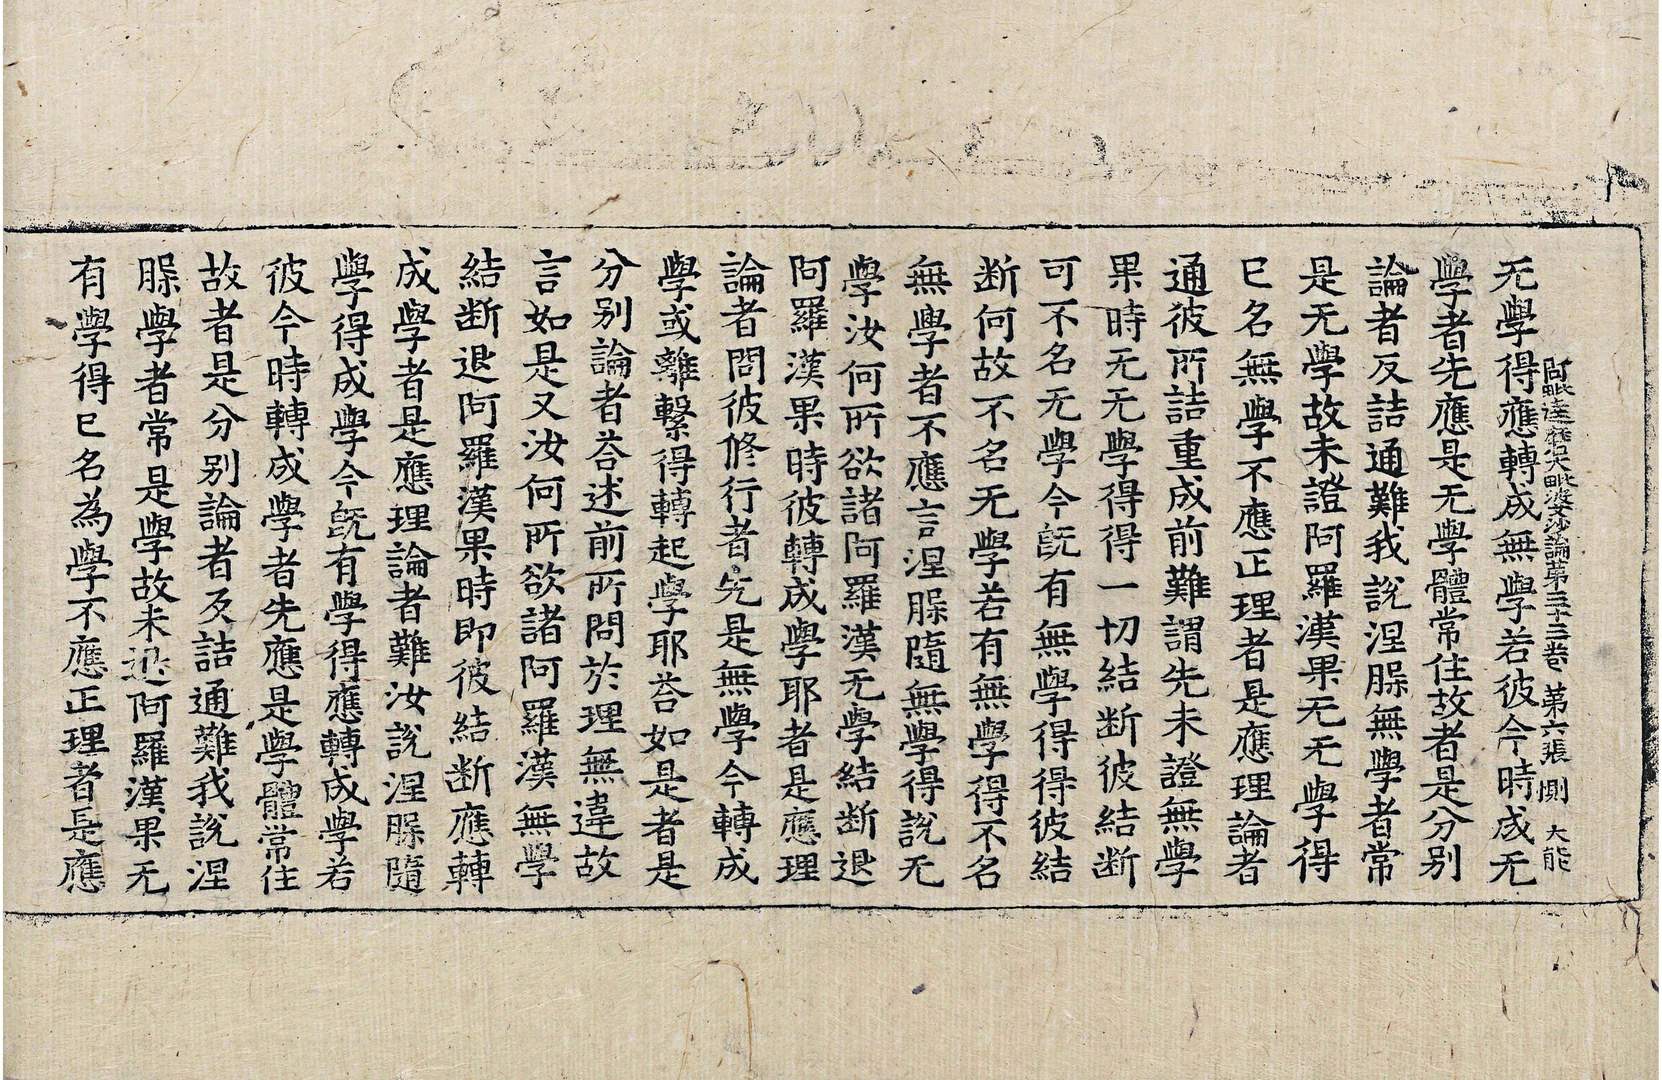 阿毗達磨大毗婆沙論第三十三卷 第六張 惻 大能
无學得應轉成無學若彼今時成无
學者先應是无學體常住故者是分別
論者反詰通難我說涅𦙁無學者常
是无學故未證阿羅漢果无无學得
已名無學不應正理者是應理論者
通彼所詰重成前難謂先未證無學
果時无无學得得一切結断彼結断
可不名无學今旣有無學得得彼結
断何故不名无學若有無學得不名
無學者不應言涅𦙁隨無學得說无
學汝何所欲諸阿羅漢无學結断退
阿羅漢果時彼轉成學耶者是應理
論者問彼修行者先是無學今轉成
學或離繫得轉起學耶荅如是者是
分別論者荅述前所問於理無違故
言如是又汝何所欲諸阿羅漢無學
結断退阿羅漢果時即彼結断應轉
成學者是應理論者難汝說涅𦙁隨
學得成學今旣有學得應轉成學若
彼今時轉成學者先應是學體常住
故者是分別論者反詰通難我說涅
𦙁學者常是學故未退阿羅漢果无
有學得已名為學不應正理者是應